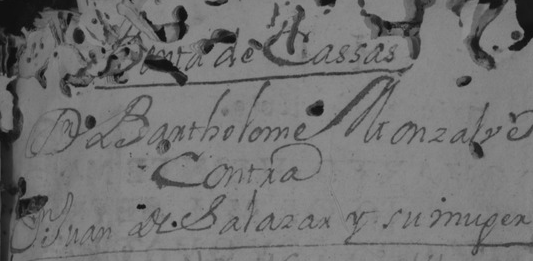 Venta de Cassas
Bartholome Monzalve
Contra
Juan de Salazar y su muger